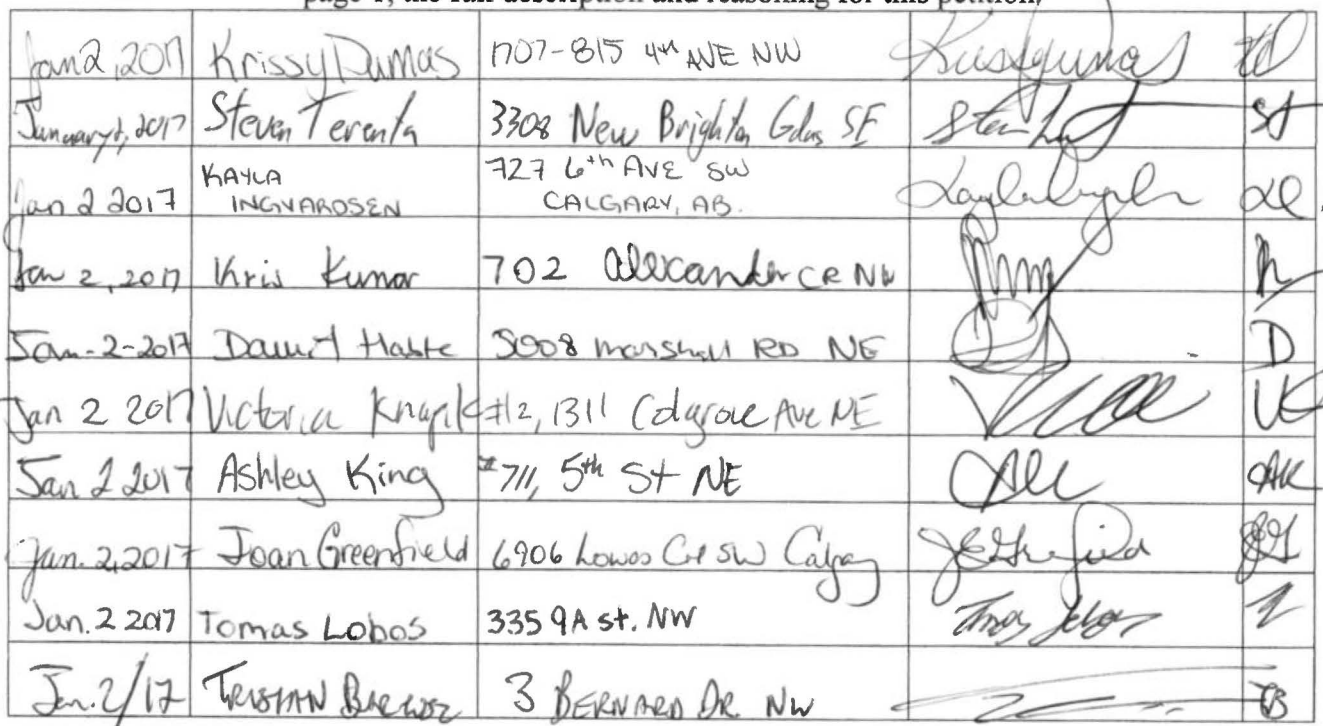 page 1, the full description and reasoning for this petition,
Jan 2, 2017 Krissy Dumas 1707-815 4th AVE NW KD
January 2, 2017 Steven Terenta 3308 New Brighton Gdns SE ST
Jan 2 2017 KAYLA INGVARDSEN 727 6th AVE SW CALGARY, AB.
Jan 2, 2017 Kris Kumar 702 Alexander CR NW
Jan-2-2017 Dawit Habte 5008 Marshall RD NE D
Jan 2 2017 Victoria #12, 1311 Colgrove Ave NE VK
Jan 2 2017 Ashley King #711, 5th St NE AK
Jan. 2, 2017 Joan Greenfield 6906 Lowes Cr SW Calgary JG
Jan. 2 2017 Tomas Lobos 3359A St. NW
Jan. 2/17 TRISTAN 3 BERNARD DR. NW TB